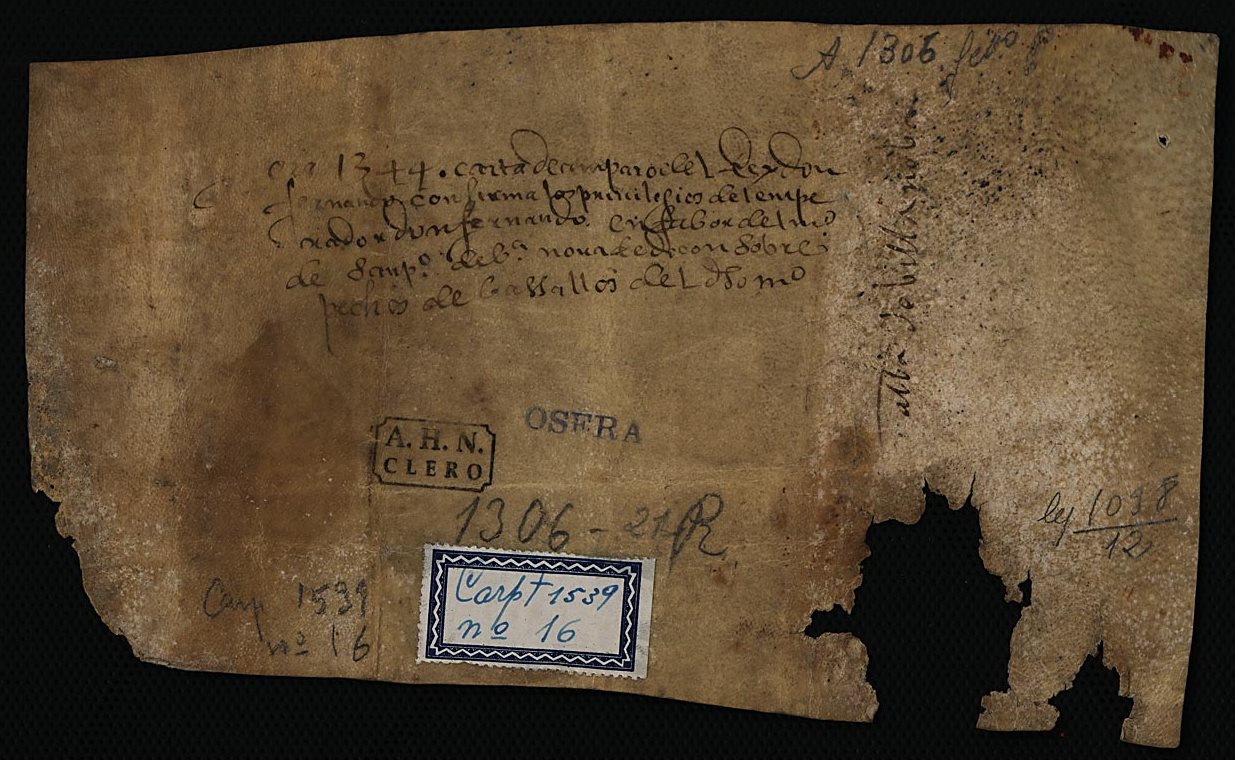 A. 1306. febº 8
era 1344. carta de amparo del Rey don
fernando confirma los privilegios del empe
rador don fernando. en fabor del mº
de sanpº de bª nova de decon sobre
pechos de basallos del dho mº
OSERA
A. H. N.
CLERO
1306 - 21 R.
leg 1038
12
Carpt 1539
nº 16
Carp 1539
nº 16